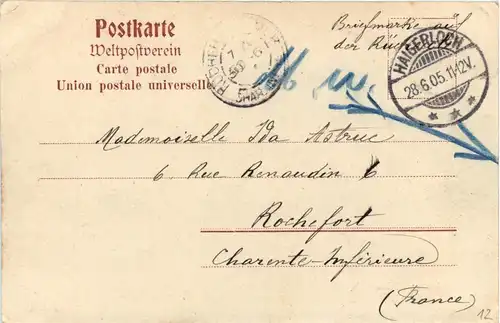 Postkarte
Weltpostverein
Carte postale
Union postale universelle
Briefmarke auf
der Rückseite
HAIGERLOCH
28.6.05.11-12V.
Mademoiselle Ida Astruc
6 Rue Renaudin 6
Rochefort
Charente-Inférieure
(France)
12